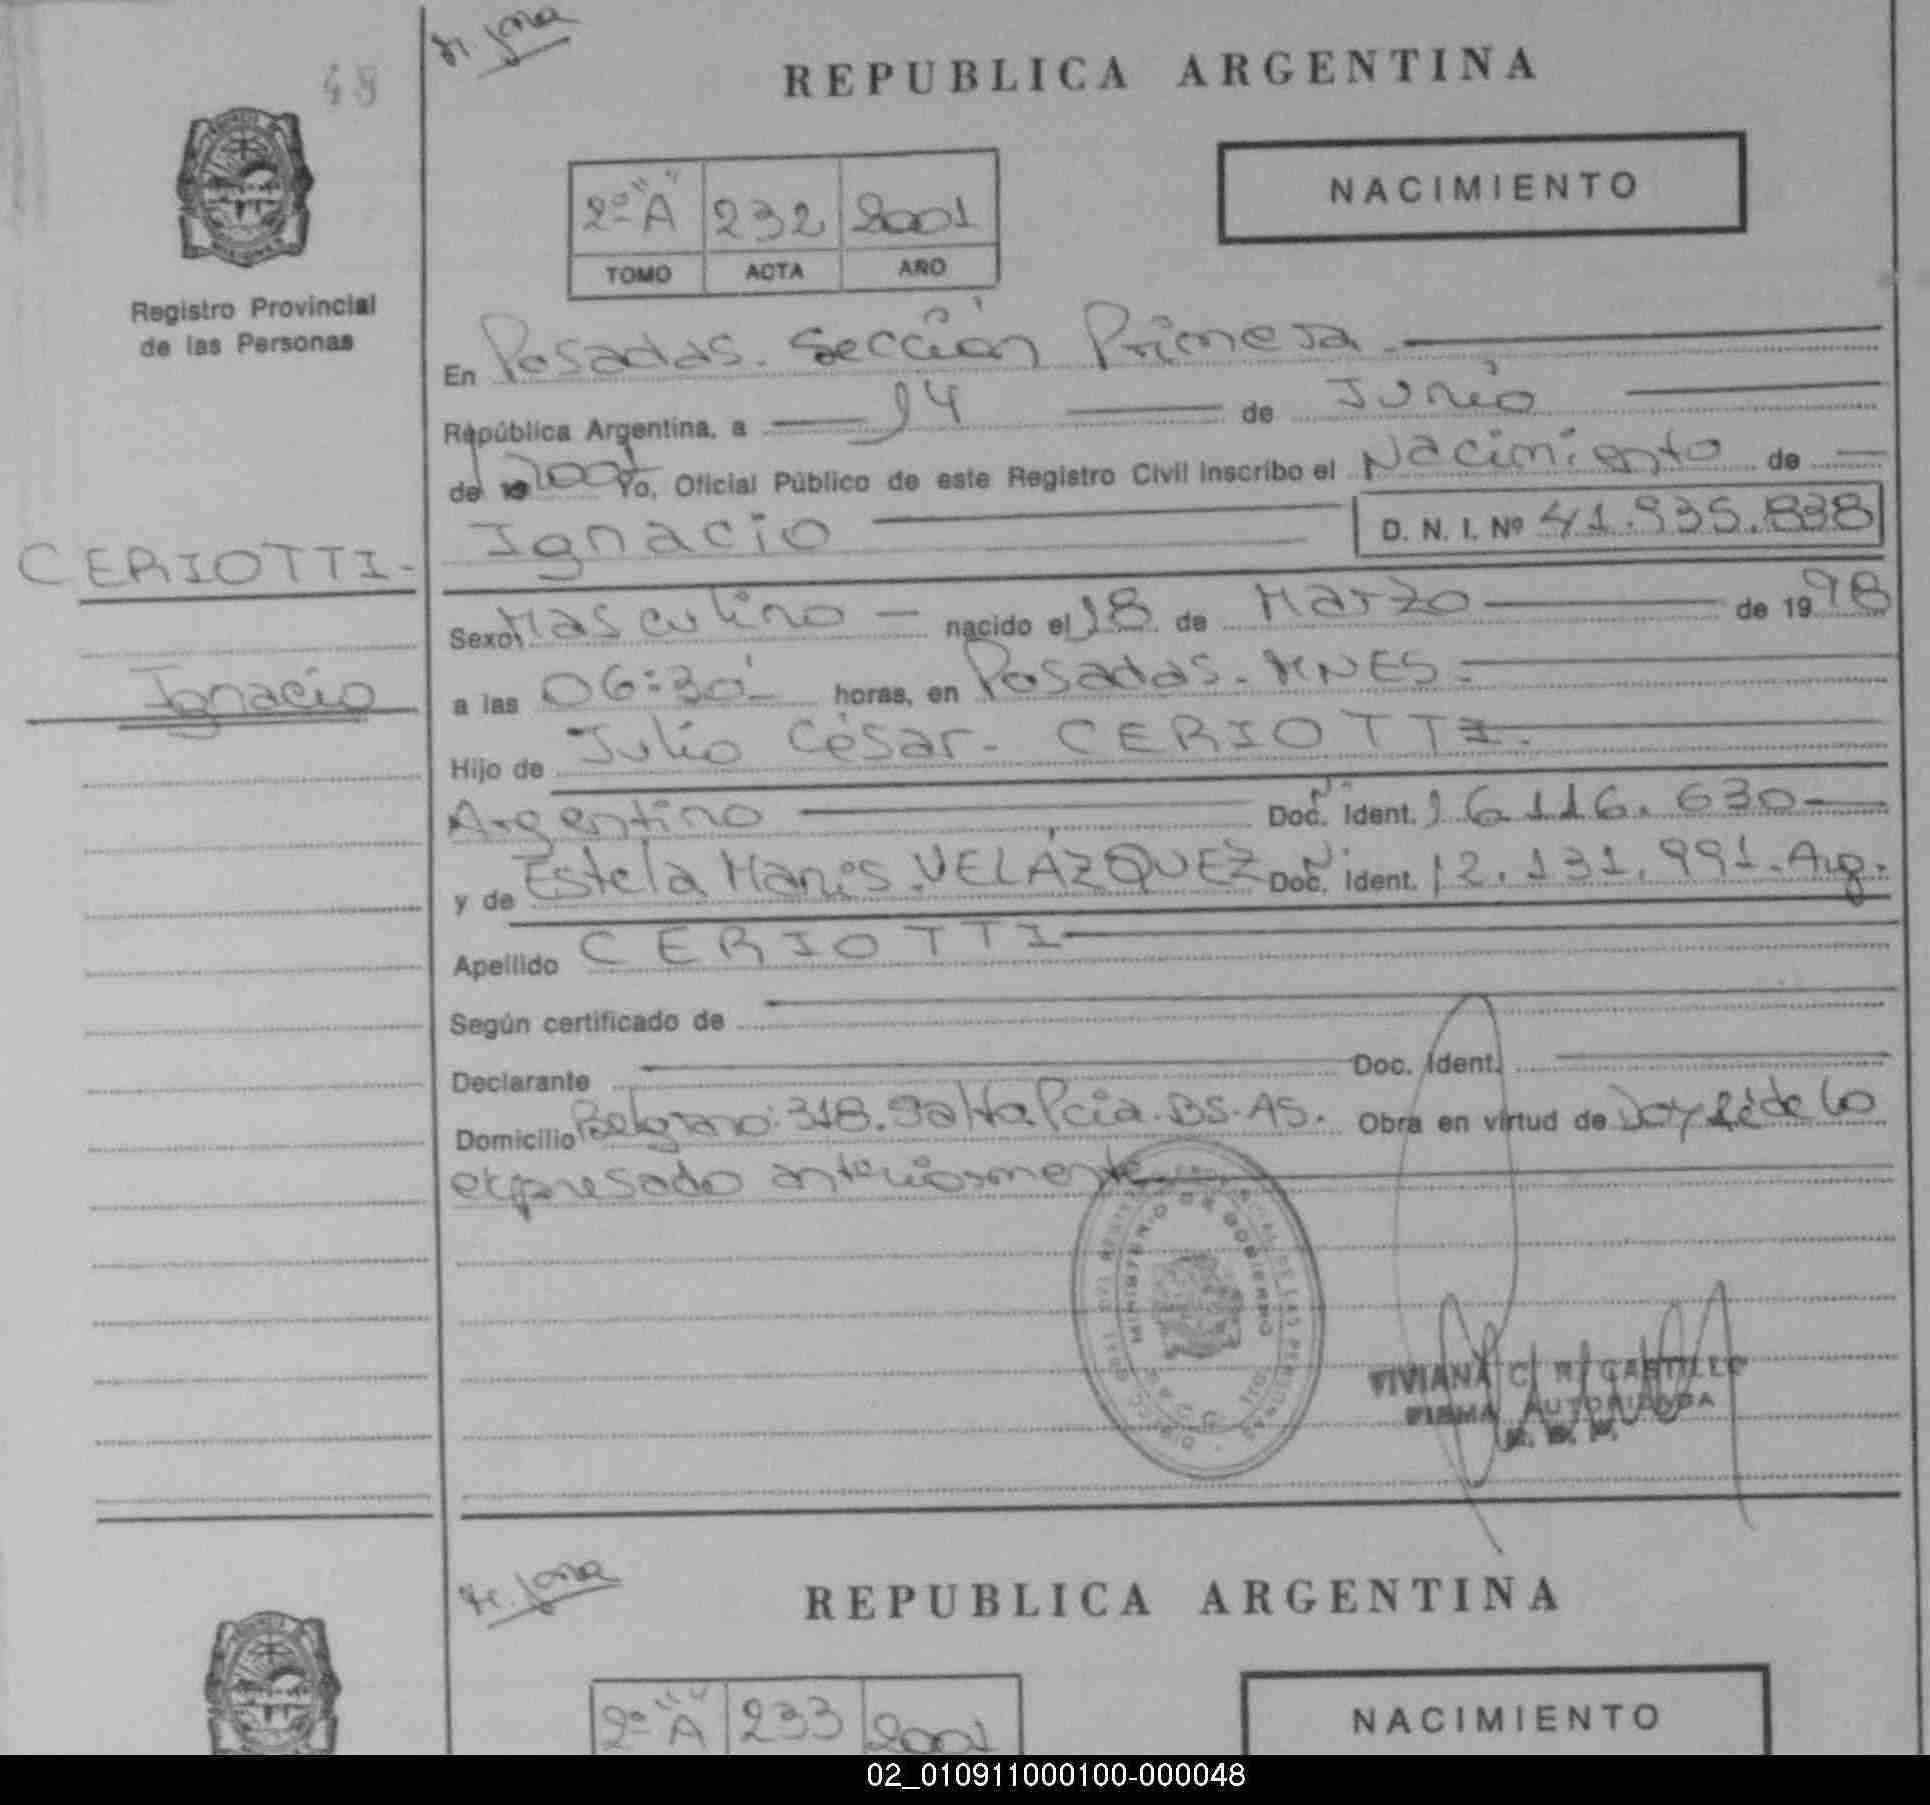 48
REPUBLICA ARGENTINA
NACIMIENTO
2º "A" 232 2001
TOMO ACTA AÑO
Registro Provincial
de las Personas
En Posadas. Sección Primera.
República Argentina, a 14 de Junio
de 2001 Yo, Oficial Público de este Registro Civil inscribo el Nacimiento de
CERIOTTI- Ignacio D. N. I. Nº 41.935.838
Sexo Masculino nacido el 18 de Marzo de 1998
Ignacio
a las 06:30' horas, en Posadas. MNES.
Hijo de Julio César. CERIOTTI.
Argentino Doc. Ident. 16.116.630
y de Estela Maris VELÁZQUEZ Doc. Ident. 12.131.991. Arg.
Apellido CERIOTTI
Según certificado de
Declarante Doc. Ident.
Domicilio Belgrano 318. Salto Pcia. BS. AS. Obra en virtud de Doy fé de lo
expresado anteriormente
MINISTERIO DE GOBIERNO
VIVIANA C. R. CASTILLO
FIRMA AUTORIZADA
REPUBLICA ARGENTINA
NACIMIENTO
2º "A" 233 2001
02_010911000100-000048